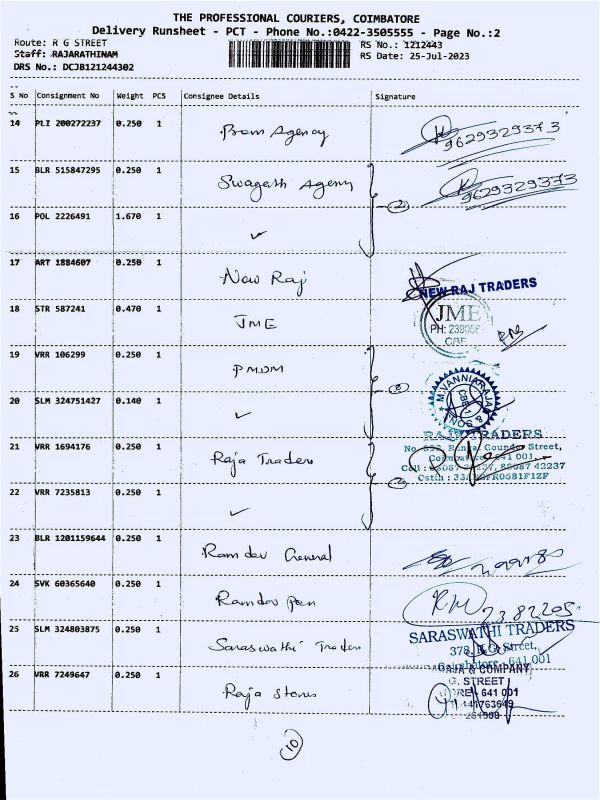 THE PROFESSIONAL COURIERS, COIMBATORE
Delivery Runsheet - PCT - Phone No.:0422-3505555 - Page No.:2
Route: R G STREET
RS No.: 1212443
Staff: RAJARATHINAM
RS Date: 25-Jul-2023
DRS No.: DCJB121244302
S No Consignment No Weight PCS Consignee Details Signature
14 PLI 200272237 0.250 1 Prem Agency 9629329373
15 BLR 515847295 0.250 1 Swagath Agency 2 9629329373
16 POL 2226491 1.670 1 ✓
17 ART 1884607 0.250 1 New Raj NEW RAJ TRADERS
18 STR 587241 0.470 1 JME JME
PH: CBE
19 VRR 106299 0.250 1 PMDM
20 SLM 324751427 0.140 1 ✓ M.VANNIARAJAN & SONS CBE-1
21 VRR 1694176 0.250 1 Raja Traders RAJA TRADERS
Gounder Street,
Coimbatore - 641 001.
Cell : 42237
22 VRR 7235813 0.250 1 ✓
23 BLR 1201159644 0.250 1 Ramdev General
24 SVK 60365640 0.250 1 Ramdev Pen
25 SLM 324803875 0.250 1 Saraswathi Traders SARASWATHI TRADERS
378, R.G. Street,
Coimbatore - 641 001
26 VRR 7249647 0.250 1 Raja Stores RAJA & COMPANY
G. STREET
641 001
10